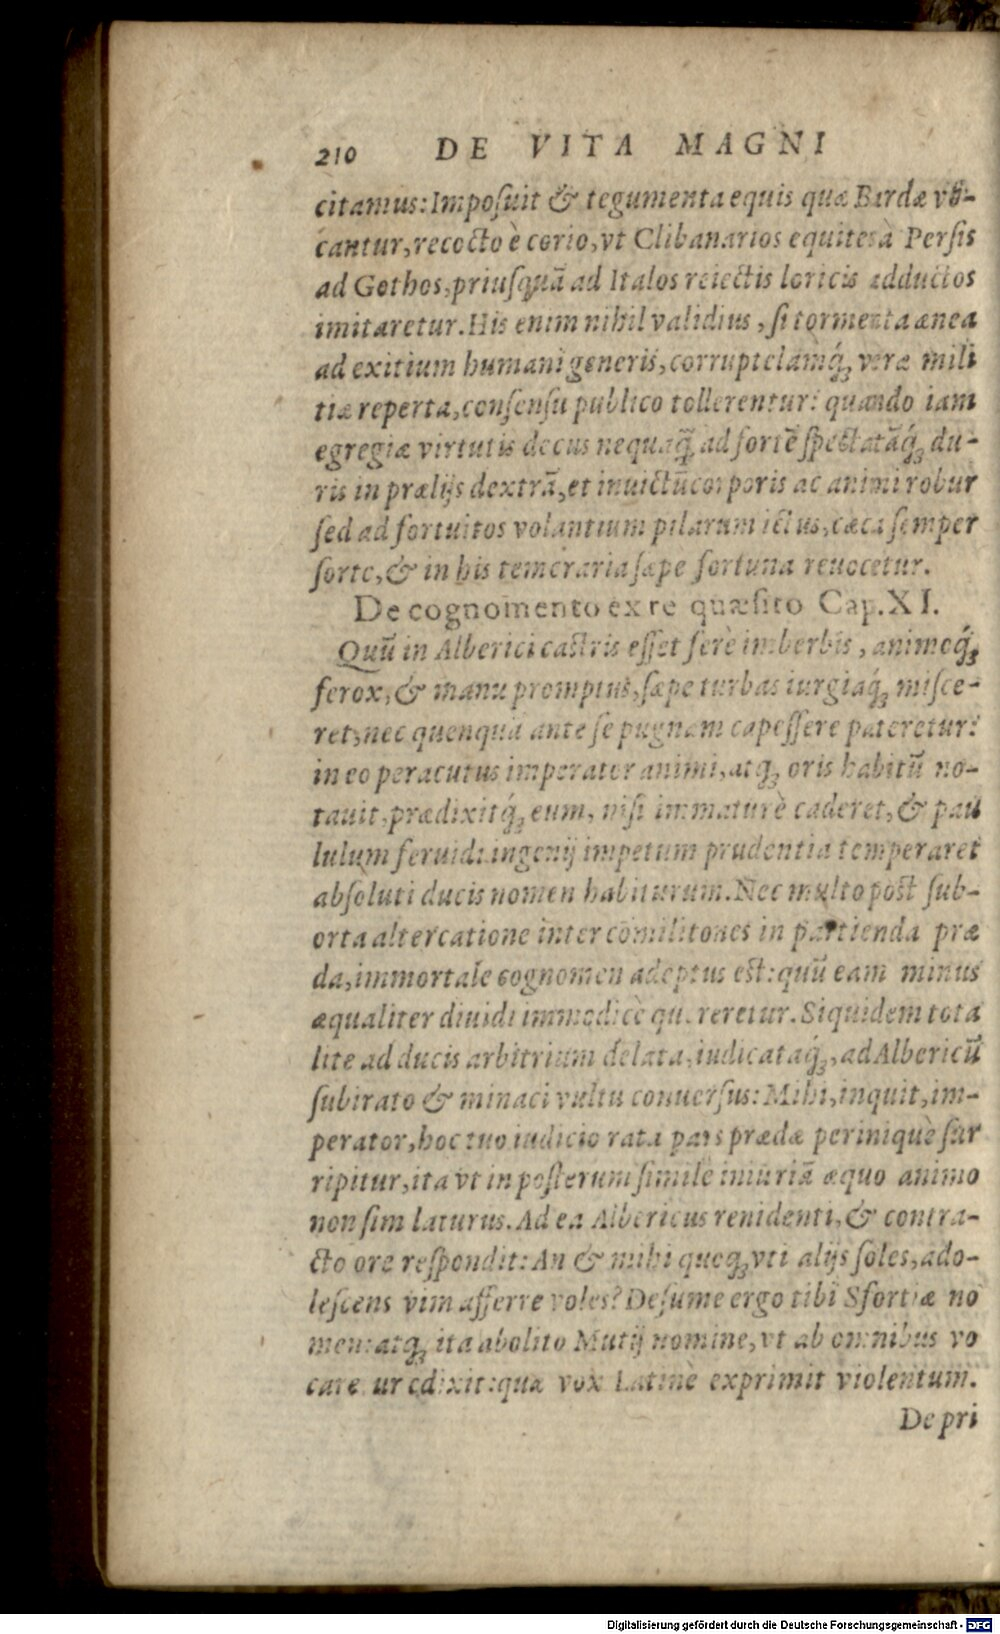 210 DE VITA MAGNI
citamus: Imposuit & tegumenta equis quæ Bardæ vo-
cantur, recocto è corio, vt Clibanarios equites à Persis
ad Gothos, priusquã ad Italos reiectis loricis adductos
imitaretur. His enim nihil validius, si tormenta ænea
ad exitium humani generis, corruptelámq́ꝫ veræ mili
tiæ reperta, consensu publico tollerentur: quando iam
egregiæ virtutis decus nequaq̃ꝫ ad fortẽ spectatãq́ꝫ du-
ris in prælijs dextrã, et inuictũ corporis ac animi robur
sed ad fortuitos volantium pilarum ictus, cæca semper
sorte, & in his temeraria sæpe fortuna reuocetur.
De cognomento ex re quæsito Cap. XI.
Quũ in Alberici castris esset ferè imberbis, animoq́ꝫ
ferox, & manu promptus, sæpe turbas iurgiaq́ꝫ misce-
ret, nec quenquã ante se pugnam capessere pateretur:
in eo peracutus imperator animi, atqꝫ oris habitũ no-
tauit, prædixitq́ꝫ eum, nisi immaturè caderet, & pau
lulum feruidi ingenij impetum prudentia temperaret
absoluti ducis nomen habiturum. Nec multo pòst sub-
orta altercatione inter cõmilitones in partienda præ
da, immortale cognomen adeptus est: quũ eam minus
æqualiter diuidi immodicè quereretur. Siquidem tota
lite ad ducis arbitrium delata, iudicataq́ꝫ, ad Albericũ
subirato & minaci vultu conuersus: Mihi, inquit, im-
perator, hoc tuo iudicio rata pars prædæ perinique sur
ripitur, ita vt in posterum similẽ iniuriã æquo animo
non sim laturus. Ad ea Albericus renidenti, & contra-
cto ore respondit: An & mihi quoqꝫ vti alijs soles, ado-
lescens vim afferre voles? Desume ergo tibi Sfortiæ no
men: atqꝫ ita abolito Mutij nomine, vt ab omnibus vo
caretur edixit: quæ vox Latinè exprimit violentum.
De pri
Digitalisierung gefördert durch die Deutsche Forschungsgemeinschaft - DFG